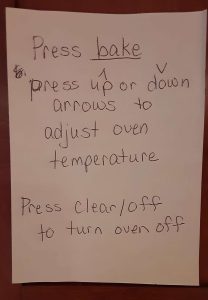 Press bake
press up or down
arrows to
adjust oven
temperature
Press clear/off
to turn oven off